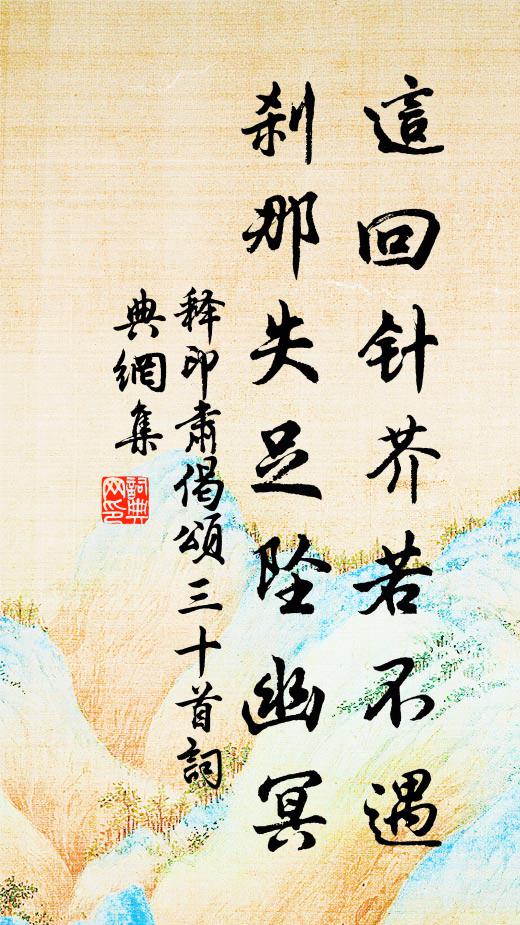 這回针芥若不遇
刹那失足坠幽冥
释印肃偈頌三十首詞
典網集
詞典
网印